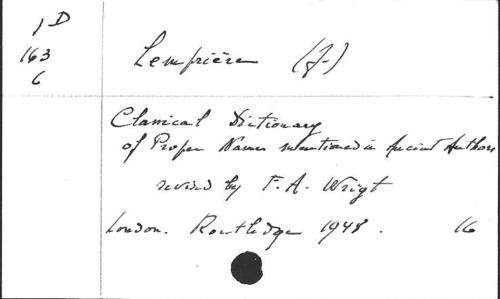 1D
163
6
Lemprière (J.)
Classical Dictionary
of Proper Names mentioned in Ancient Authors
revised by F. A. Wrigt
London. Routledge 1948. 16